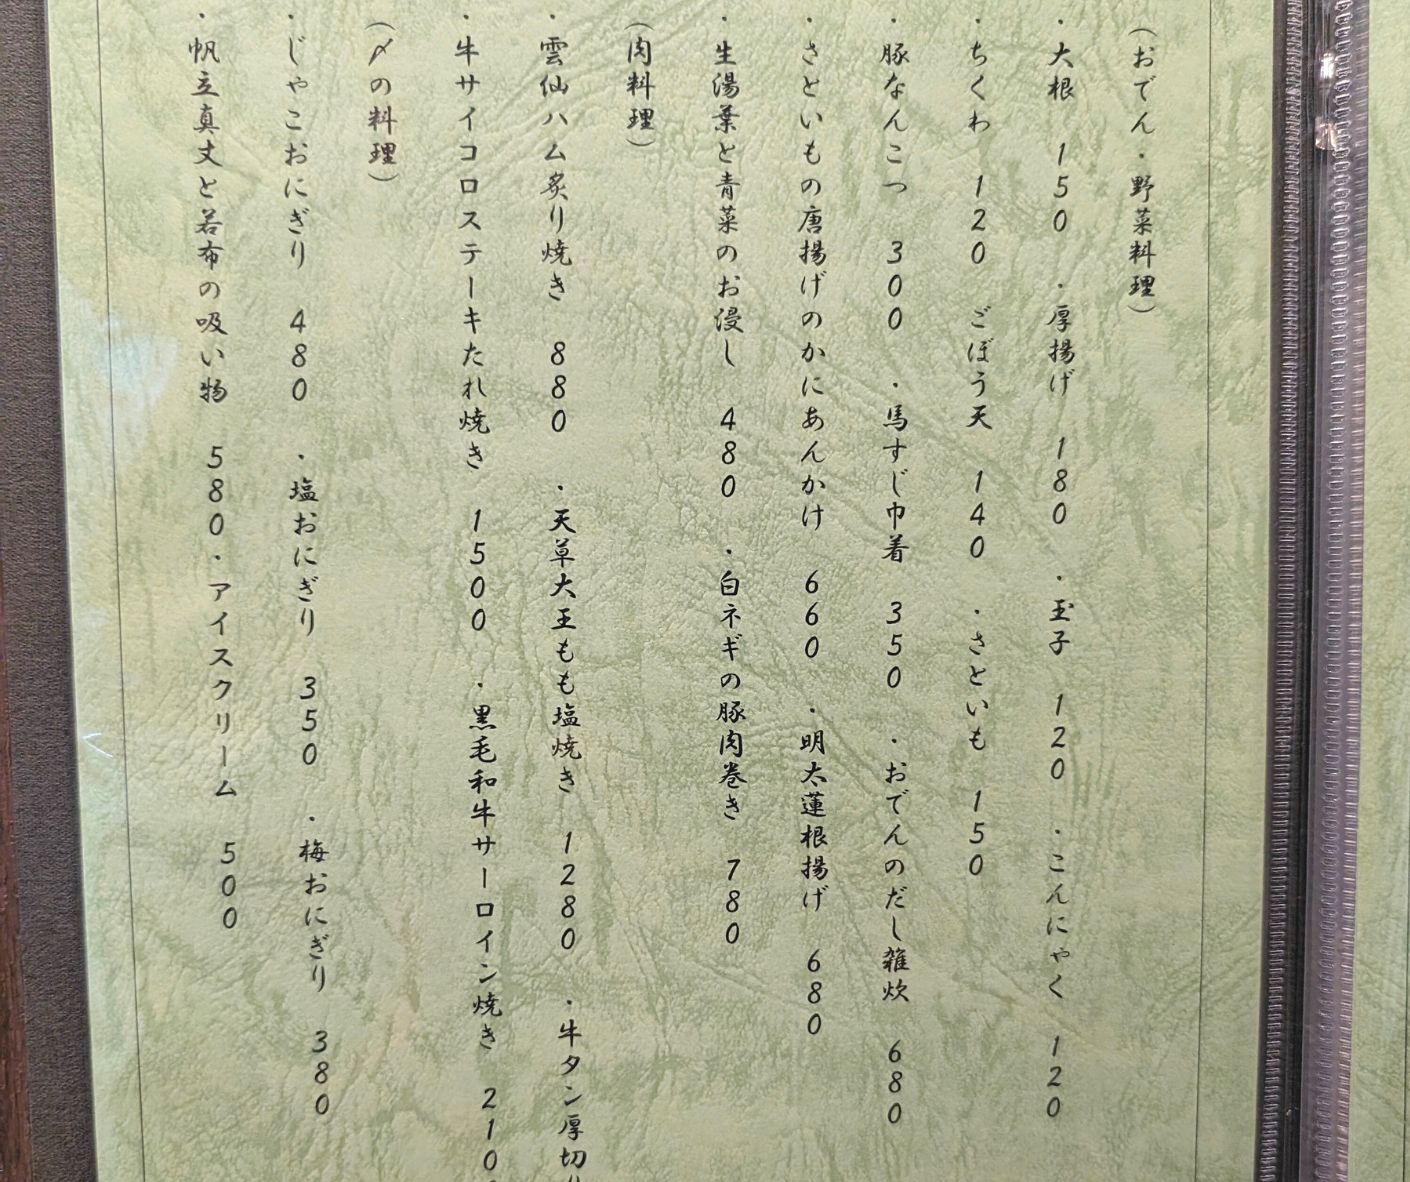 （おでん・野菜料理）
・大根　150　・厚揚げ　180　・玉子　120　・こんにゃく　120
・ちくわ　120　ごぼう天　140　・さといも　150
・豚なんこつ　300　・馬すじ巾着　350　・おでんのだし雑炊　680
・さといもの唐揚げのかにあんかけ　660　・明太蓮根揚げ　680
・生湯葉と青菜のお浸し　480　・白ネギの豚肉巻き　780
（肉料理）
・雲仙ハム炙り焼き　880　・天草大王もも塩焼き　1280　・牛タン厚切
・牛サイコロステーキたれ焼き　1500　・黒毛和牛サーロイン焼き　210
（〆の料理）
・じゃこおにぎり　480　・塩おにぎり　350　・梅おにぎり　380
・帆立真丈と若布の吸い物　580・アイスクリーム　500